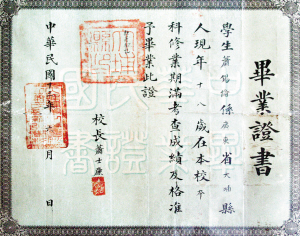 畢業證書
學生蕭錫綸係廣東省大埔縣
人現年十八歲在本校
科修業期滿考查成績及格准
予畢業此證
校長蕭士
中華民國十年月日